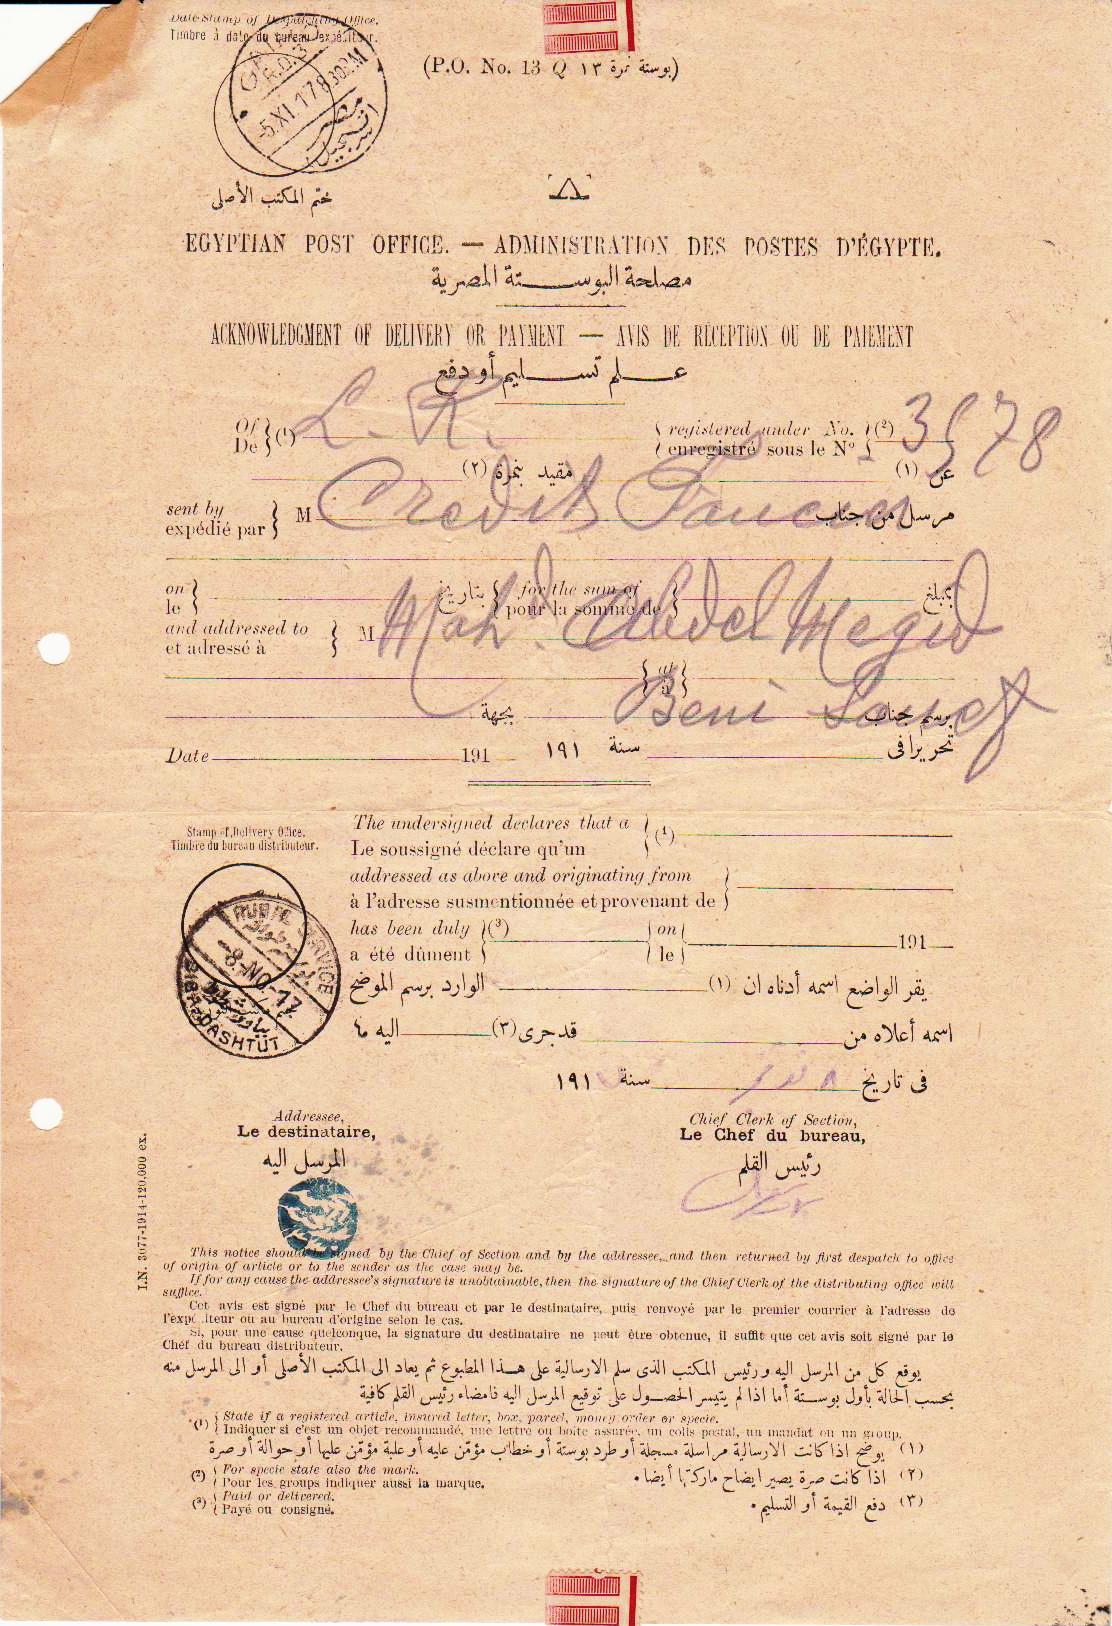 Date Stamp of Despatching Office.
Timbre à date du bureau expéditeur.
CAIRO
R.O.3
-5.XI.17 8 30PM
مصر
ختم المكتب الأصلى
(P.O. No. 13 Q بوستة نمرة ١٣)
A
EGYPTIAN POST OFFICE. — ADMINISTRATION DES POSTES D'ÉGYPTE.
مصلحة البوستة المصرية
ACKNOWLEDGMENT OF DELIVERY OR PAYMENT — AVIS DE RÉCEPTION OU DE PAIEMENT
علم تسليم أو دفع
Of (1) L. R. registered under No. (2) 3578
De enregistré sous le Nº
عن (١) مقيد بنمرة (٢)
sent by M Credit Foncier مرسل من جناب
expédié par
on for the sum of بتاريخ بمبلغ
le pour la somme de
and addressed to M Mohd. Abdel Megid
et adressé à
Beni Souef
برسم جناب بجهة
Date 191 تحريرا فى سنة ١٩١
Stamp of Delivery Office.
Timbre du bureau distributeur.
RURAL SERVICE
-8.NO.17
DASHTUT
The undersigned declares that a (1)
Le soussigné déclare qu'un
addressed as above and originating from
à l'adresse susmentionnée et provenant de
has been duly (3) on 191
a été dûment le
يقر الواضع اسمه أدناه ان (١) الوارد برسم الموضح
اسمه أعلاه من قد جرى (٣) اليه ما
فى تاريخ ٨ سنة ١٩١
Addressee,
Le destinataire,
المرسل اليه
Chief Clerk of Section,
Le Chef du bureau,
رئيس القلم
I.N. 3077-1914-120,000 ex.
This notice should be signed by the Chief of Section and by the addressee, and then returned by first despatch to office
of origin of article or to the sender as the case may be.
If for any cause the addressee's signature is unobtainable, then the signature of the Chief Clerk of the distributing office will
suffice.
Cet avis est signé par le Chef du bureau et par le destinataire, puis renvoyé par le premier courrier à l'adresse de
l'expéditeur ou au bureau d'origine selon le cas.
Si, pour une cause quelconque, la signature du destinataire ne peut être obtenue, il suffit que cet avis soit signé par le
Chef du bureau distributeur.
يوقع كل من المرسل اليه ورئيس المكتب الذى سلم الارسالية على هذا المطبوع ثم يعاد الى المكتب الأصلى أو الى المرسل منه
بحسب الحالة بأول بوستة أما اذا لم يتيسر الحصول على توقيع المرسل اليه فامضاء رئيس القلم كافية
(1) State if a registered article, insured letter, box, parcel, money order or specie.
Indiquer si c'est un objet recommandé, une lettre ou boite assurée, un colis postal, un mandat ou un group.
(١) يوضح اذا كانت الارسالية مراسلة مسجلة أو طرد بوستة أو خطاب مؤمّن عليه أو علبة مؤمّن عليها أو حوالة أو صرة
(2) For specie state also the mark.
Pour les groups indiquer aussi la marque.
(٢) اذا كانت صرة يصير ايضاح ماركتها أيضا.
(3) Paid or delivered.
Payé ou consigné.
(٣) دفع القيمة أو التسليم.